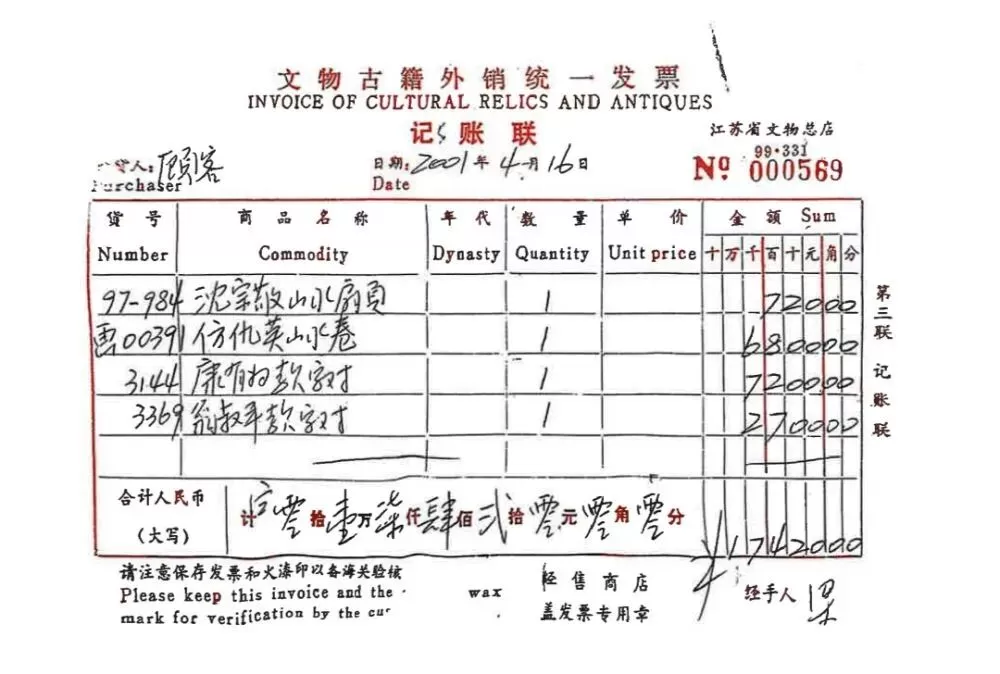 文物古籍外销统一发票
INVOICE OF CULTURAL RELICS AND ANTIQUES
记账联
江苏省文物总店
货人:顾客
Purchaser
日期:2001年4月16日
Date
99·331
Nº 000569
货号 商品名称 年代 数量 单价 金额 Sum
Number Commodity Dynasty Quantity Unit price 十万千百十元角分
97-984 沈宗敬山水扇頁 1 72000
画00391 仿仇英山水卷 1 680000
3144 康有为款字对 1 720000
3369 翁叔平款字对 1 270000
合计人民币
(大写)
计零拾壹万柒仟肆佰贰拾零元零角零分
¥1742000
第三联 记账联
请注意保存发票和火漆印以备海关验核
Please keep this invoice and the wax
mark for verification by the cus
经售商店
盖发票专用章
经手人